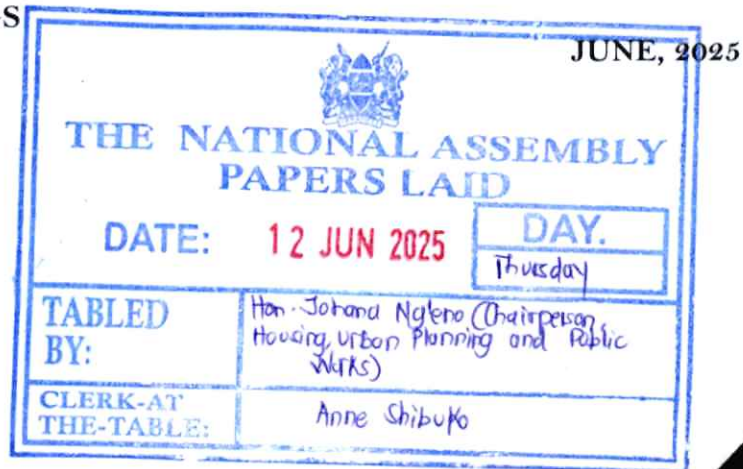 S
JUNE, 2025
THE NATIONAL ASSEMBLY
PAPERS LAID
DATE: 12 JUN 2025
DAY.
Thursday
TABLED BY:
Hon. Johana Ng'eno (Chairperson,
Housing, Urban Planning and Public
Works)
CLERK-AT
THE-TABLE:
Anne Shibuko